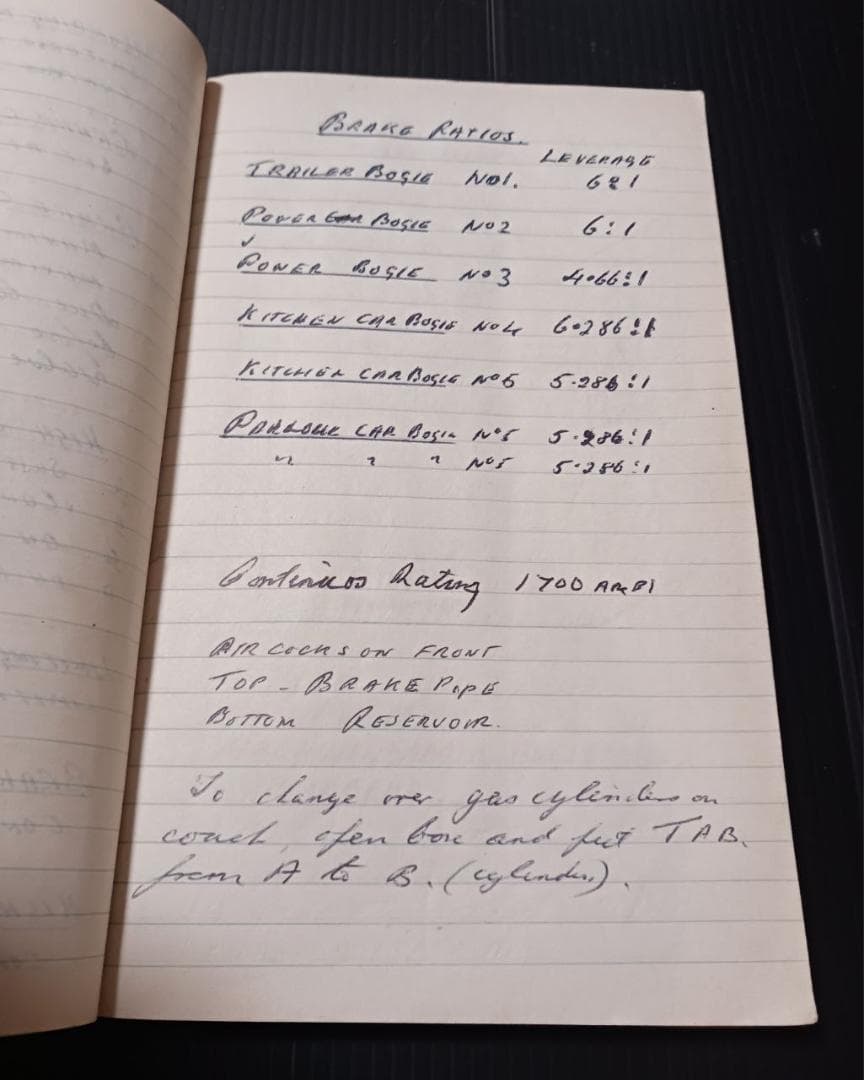 BRAKE RATIOS.
LEVERAGE
TRAILER BOGIE No1. 6:1
POWER BOGIE No2 6:1
POWER BOGIE No3 4.66:1
KITCHEN CAR BOGIE No4 6.286:1
KITCHEN CAR BOGIE No5 5.286:1
CAR BOGIE No5 5.286:1
" " " No5 5.286:1
Rating 1700 AMPS
AIR COCKS ON FRONT
TOP - BRAKE PIPE
BOTTOM RESERVOIR.
To change over gas cylinders on
coach, open box and put TAB.
from A to B. (cylinder).